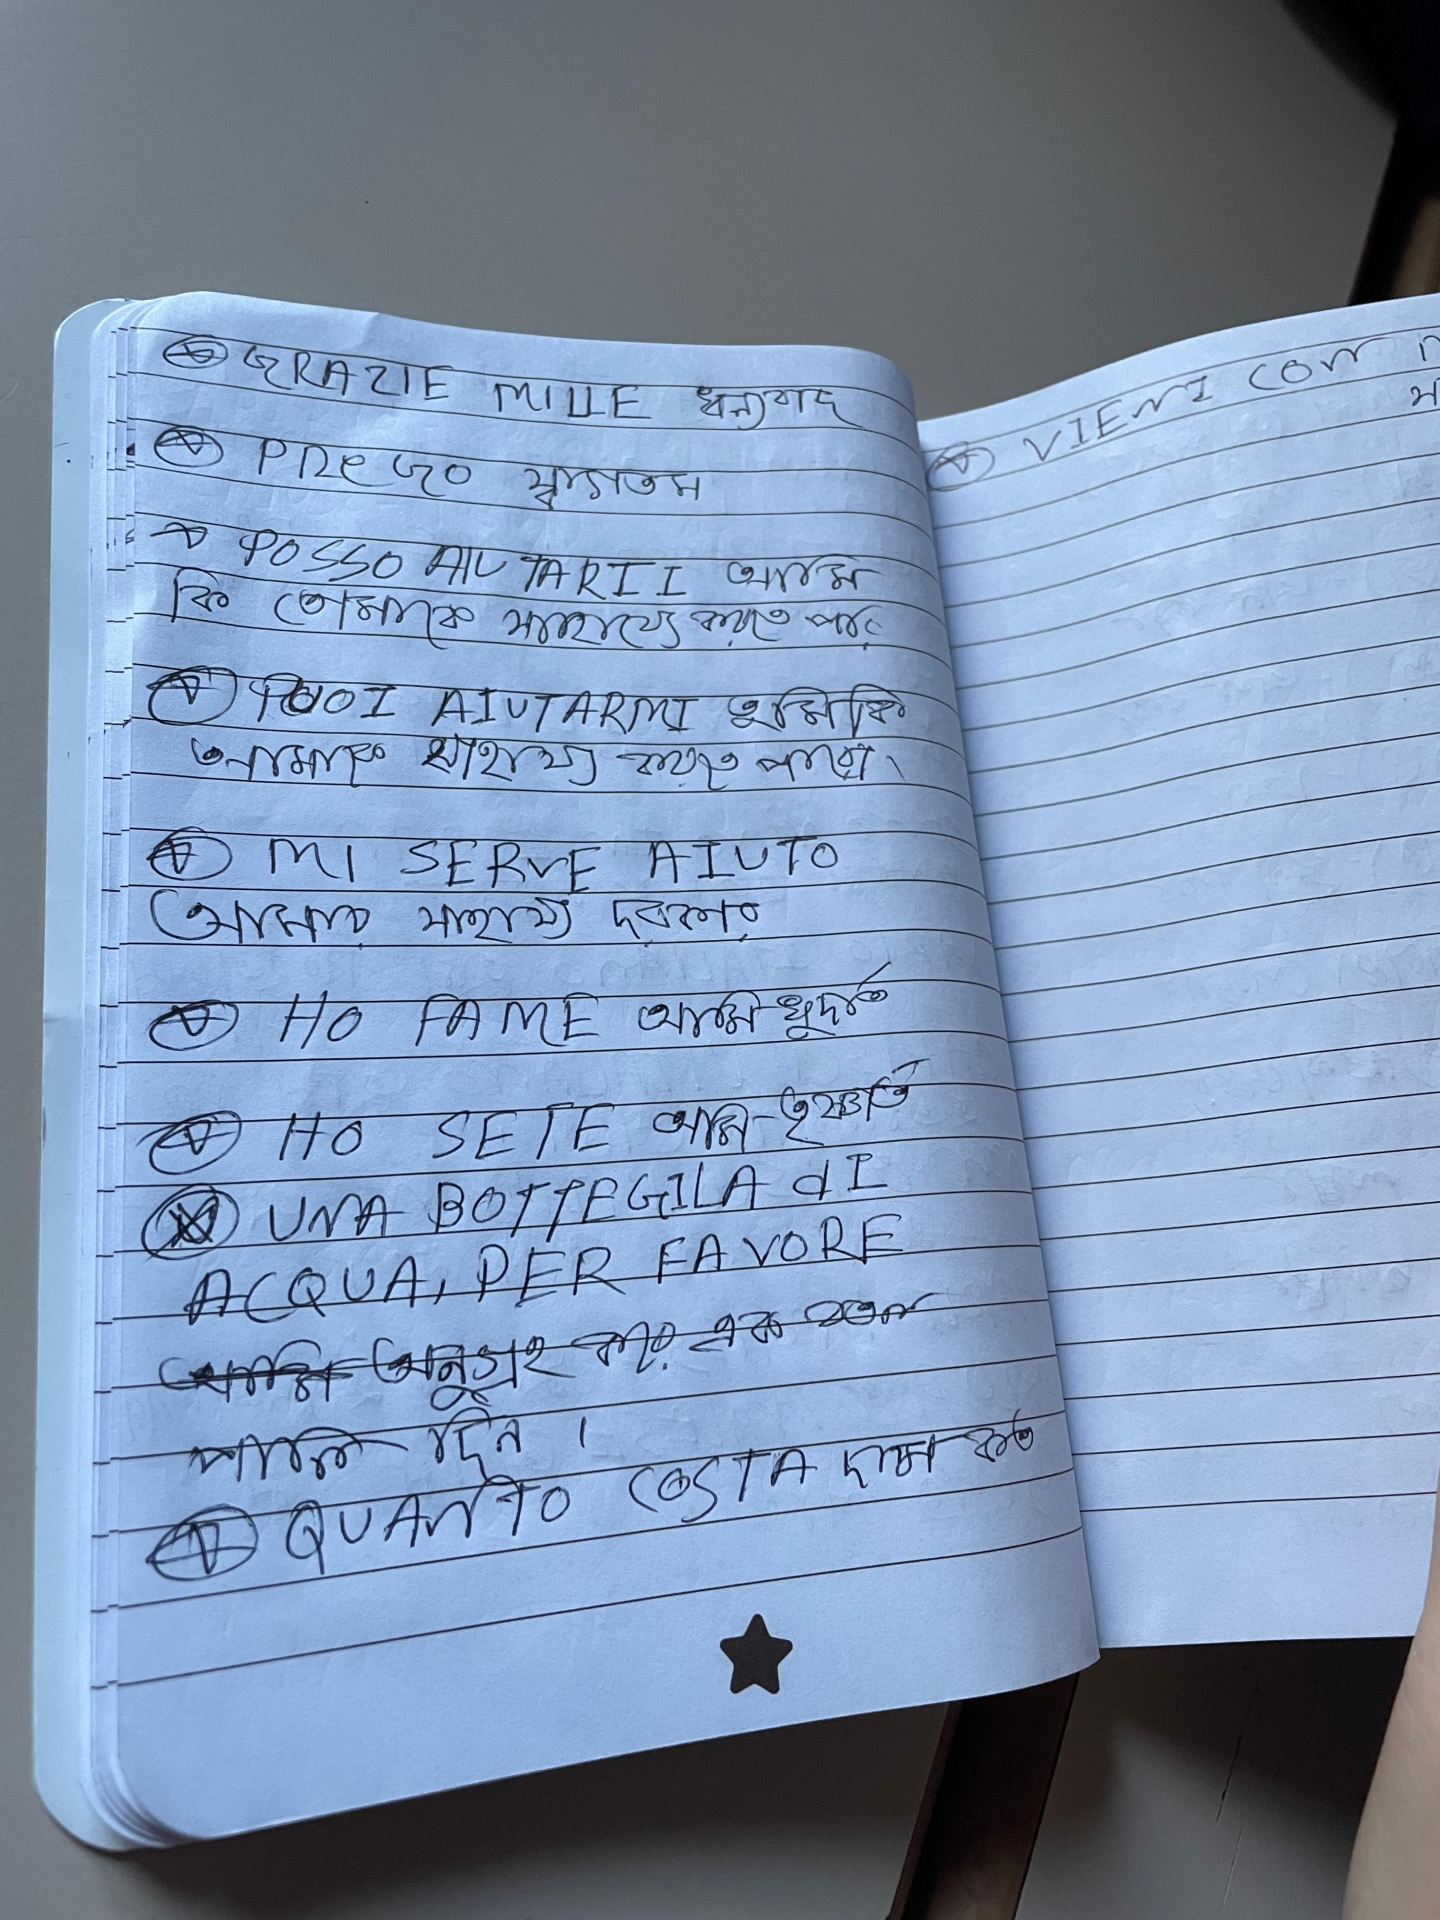 GRAZIE MILLE ধন্যবাদ
PREGO স্বাগতম
POSSO AIUTARTI আমি
কি তোমাকে সাহায্যে করতে পারি
PUOI AIUTARMI তুমি কি
আমাকে সাহায্য করতে পারো।
MI SERVE AIUTO
আমার সাহায্য দরকার
HO FAME আমি খুদার্ত
HO SETE আমি তৃষ্ণার্ত
UNA BOTTEGILA dI
ACQUA, PER FAVORE
অনুগ্রহ করে এক বতল
পানি দিন ।
QUANTO COSTA দাম কত
VIENI CON